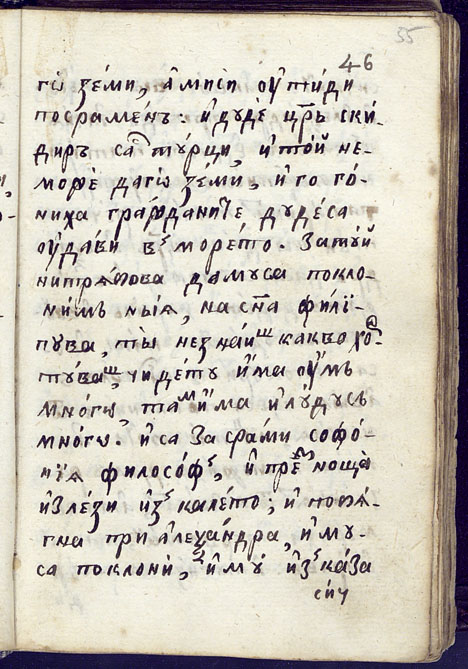 55
46
гѡ зе́ми, а҆ миси ѹ҆тиди
посраме́нъ: и҆ дудѐ цр҃ь ски́-
диръ са́ᵗ ту́рци, и҆ то́й не-
морѐ да гѡ зе́ми, и҆ го го́-
ниха гра́жданите дуде́са
ѹ҆да́ви въ море́то. За ту́й
нитрѧ́бова да муса покло-
ни́мъ ны́ѧ, на сн҃а филї-
пува, ты̀ незна́иш какво хо-
ту́ваш, чи де́ту и҆́ма ѹ҆́мъ
мно́гѡ, та́м и҆́ма и҆ лу́дусъ
мно́гѡ. и҆ са засра́ми софо́-
нїѧ филосо́фъ, и҆ пре́з ноща̀
и҆зле́зи и҆зъ кале́то; и҆ побѧ́-
гна при а҆леѯа́ндра, и҆ му-
са поклонѝ, и҆ му́ и҆зъка́за
си́ч